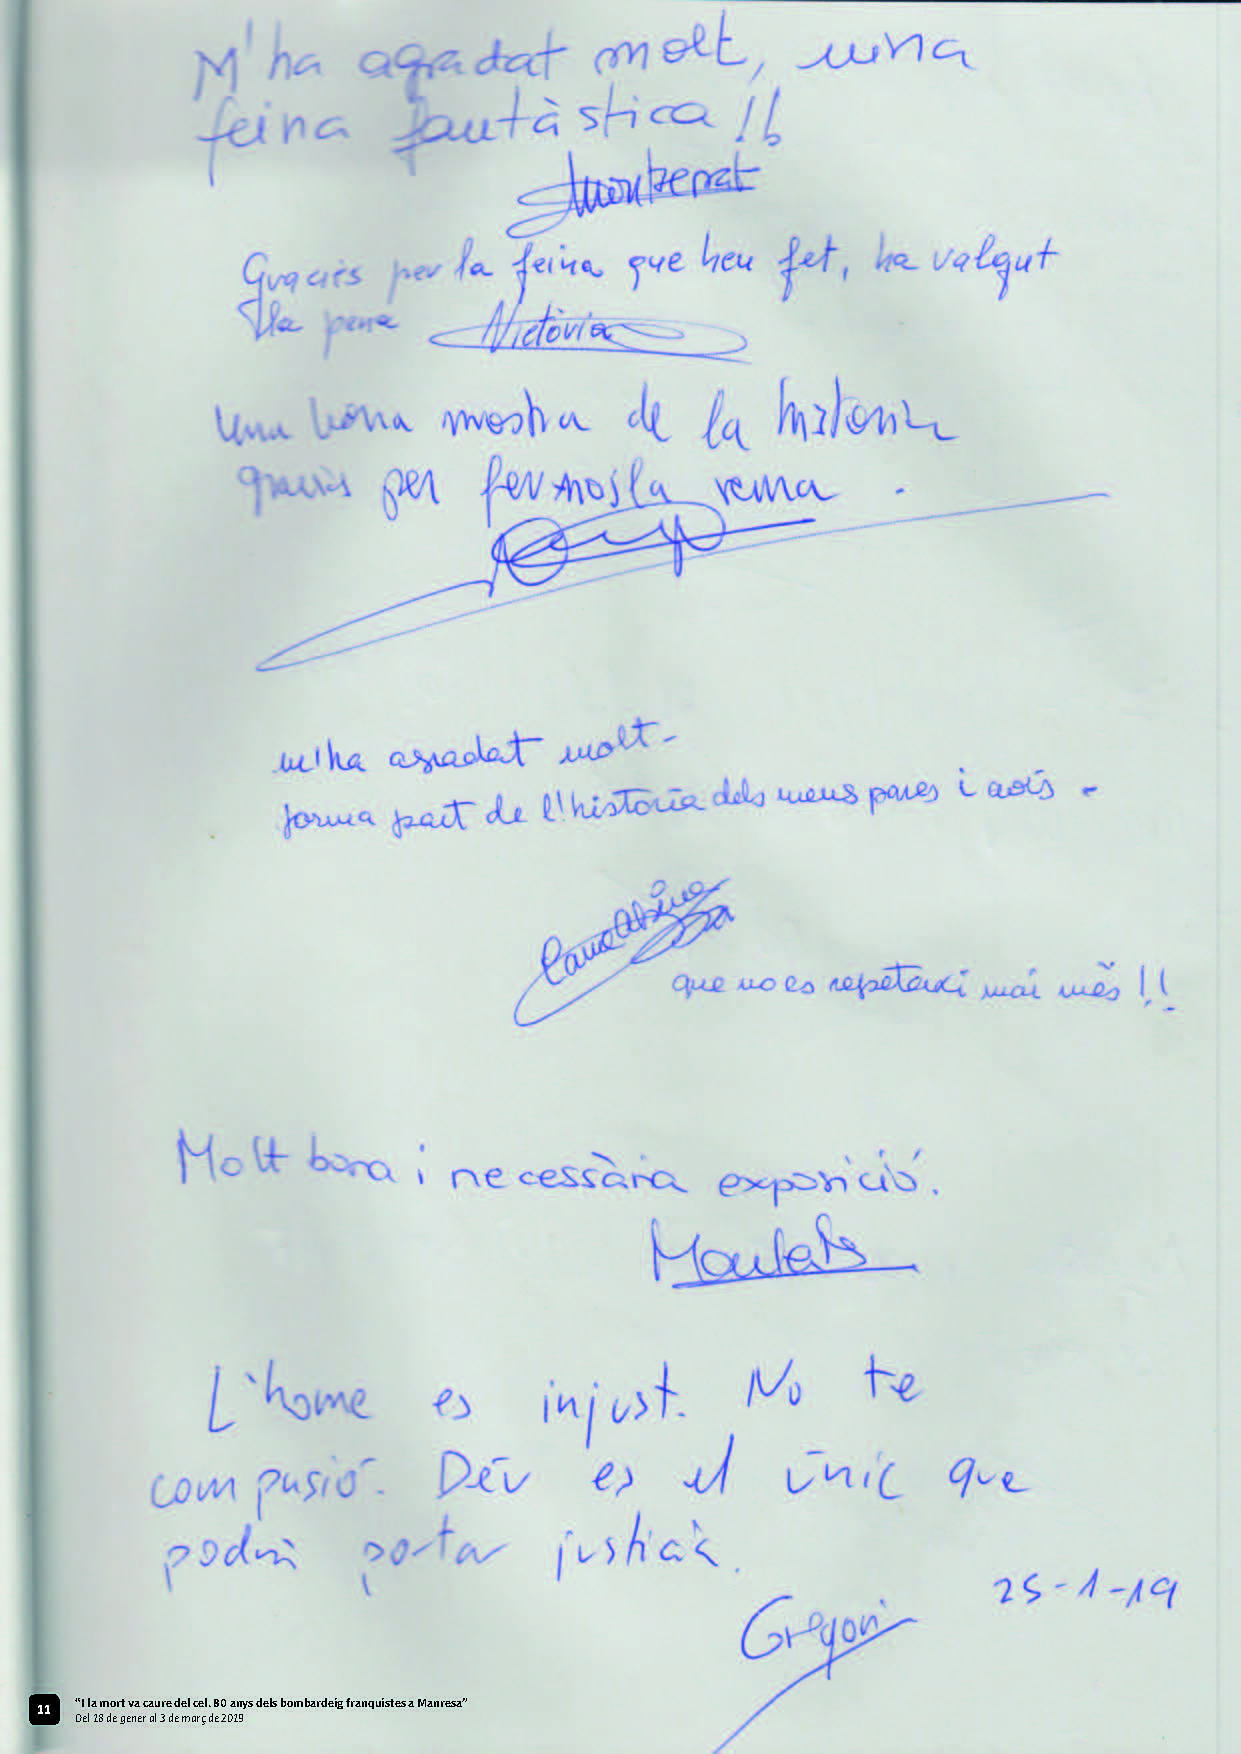 M'ha agradat molt, una
feina fantàstica!!
Montserrat
Gracies per la feina que heu fet, ha valgut
la pena Victòria
Una bona mostra de la historia
gracies per fer-nosla
m'ha agradat molt -
forma part de l'història dels meus pares i avis -
que no es repeteixi mai més!!
Molt bona i necessària exposició.
L'home es injust. No te
compasió. Déu es el únic que
podrà portar justicià.
Gregori 25-1-19
11 "I la mort va caure del cel. 80 anys dels bombardeig franquistes a Manresa"
Del 18 de gener al 3 de març de 2019